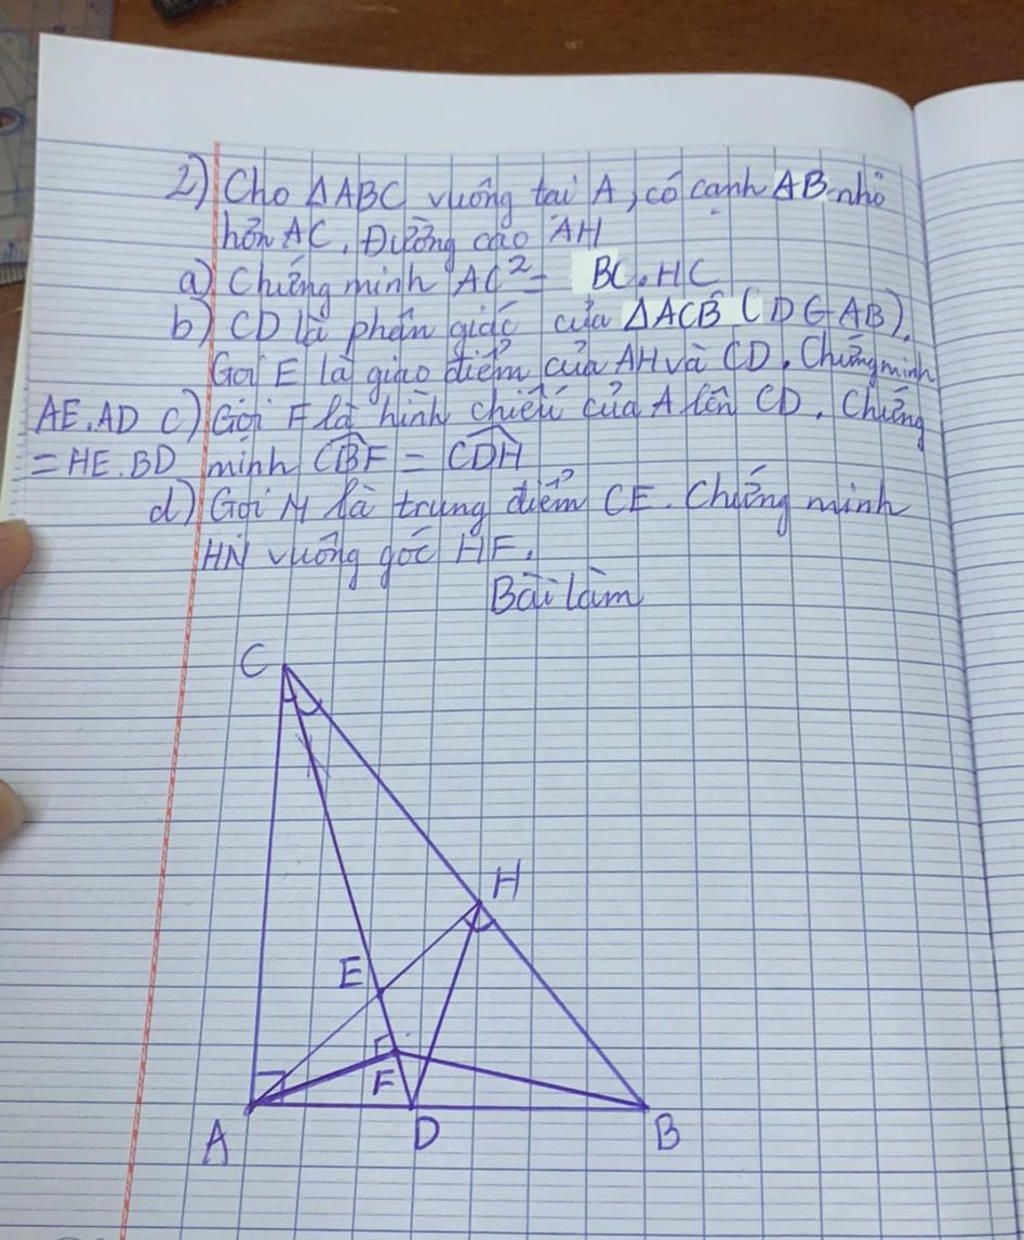 2) Cho ΔABC vuông tại A, có cạnh AB nhỏ
hơn AC. Đường cao AH
a) Chứng minh AC² = BC.HC
b) CD là phân giác của ΔACB (D ∈ AB).
Gọi E là giao điểm của AH và CD. Chứng minh
AE.AD c) Gọi F là hình chiếu của A lên CD. Chứng
= HE.BD minh \widehat{CBF} = \widehat{CDH}
d) Gọi N là trung điểm CE. Chứng minh
HN vuông góc HF.
Bài làm
C
H
E
F
A
D
B